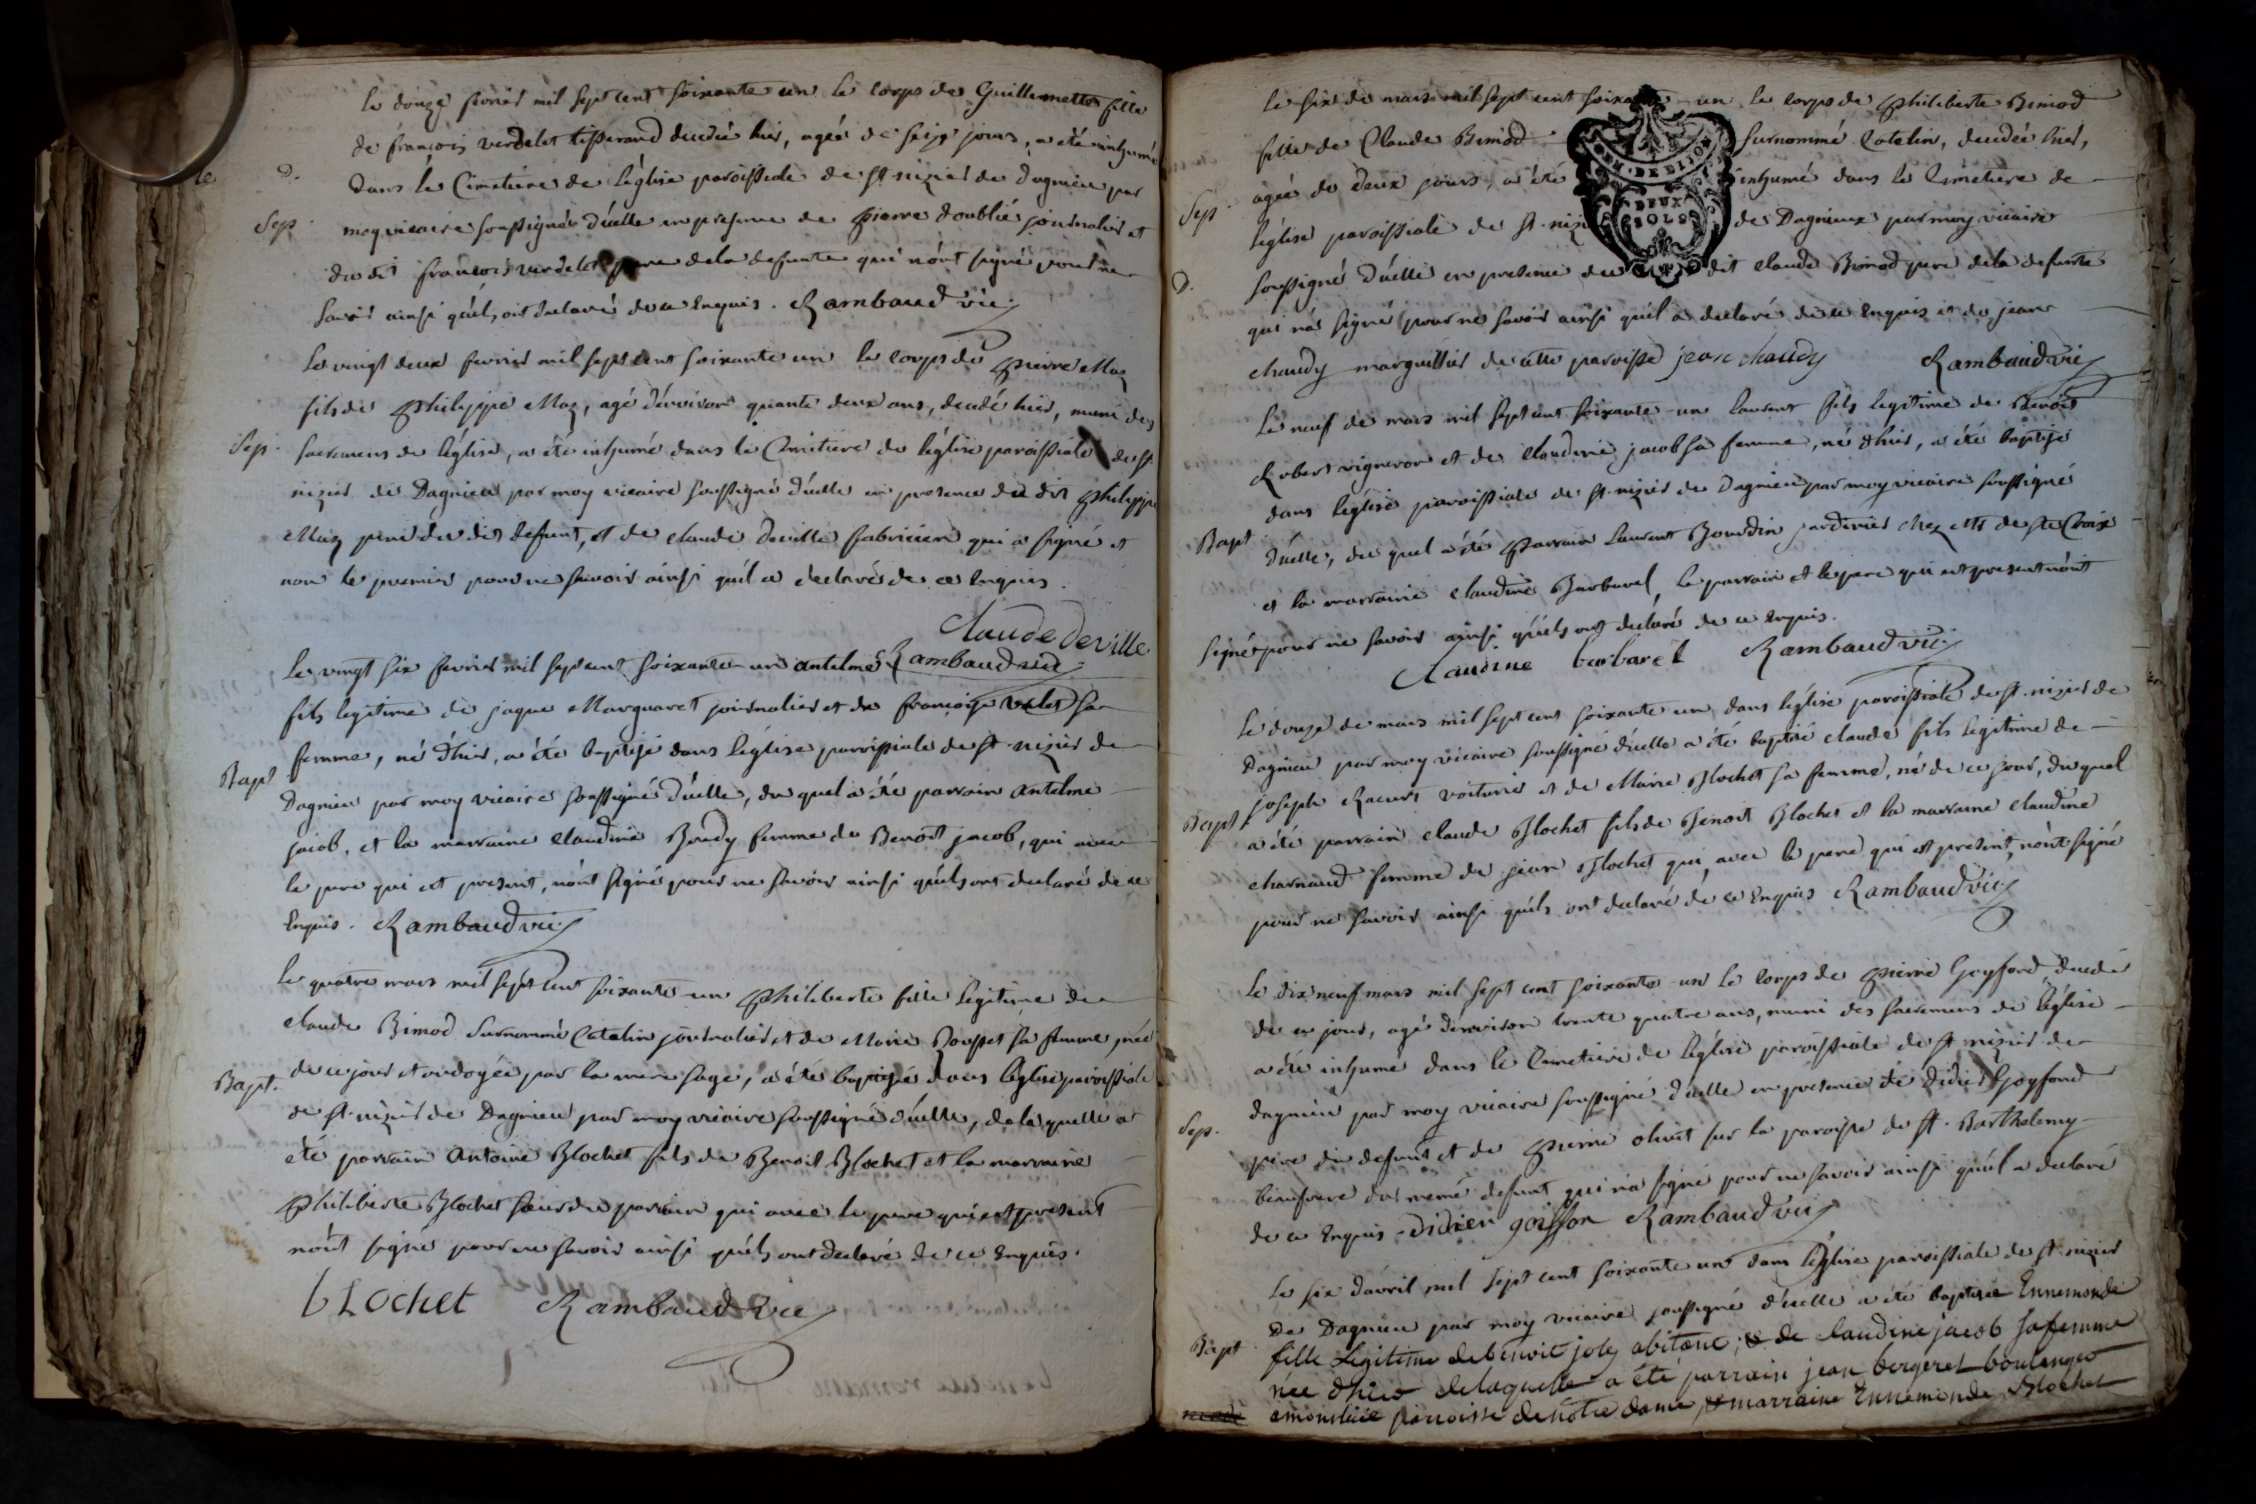 Le douze fevrier mil sept cent soixante un le corps de Guillemette fille
de françois verdelet tisserand decedée hier, agée de seize jours, a été inhumé
D.
dans le Cimetiere de l'église paroissiale de st nizier de dagnieu par
Sep.
moy vicaire soussigné d'icelle en presence de pierre doublié journalier et
du dit françois verdelet pere de la defunte qui n'ont signé pour ne
savoir ainsi qu'ils ont declaré de ce enquis. Rambaud vic
Le vingt deux fevrier mil sept cent soixante un le corps de pierre Maz
fils de philippe Maz, agé d'environ quarante deux ans, decedé hier, muni des
Sep.
sacremens de l'église, a été inhumé dans le Cimetiere de l'église paroissiale de st
nizier de Dagnieu par moy vicaire soussigné d'icelle en presence du dit philippe
Maz pere du dit defunt, et de claude deville fabricien qui a signé et
non le premier pour ne savoir ainsi qu'il a declaré de ce enquis.
Claude Deville
Le vingt six fevrier mil sept cent soixante un antelme Rambaud vic
fils legitime de jaque Marguaret journalier et de françoise velet sa
femme, né d'hier, a été baptisé dans l'église paroissiale de st nizier de
Bapt
Dagnieu par moy vicaire soussigné d'icelle, du quel a été parrain antelme
jacob, et la marraine claudine Boudy femme de Benoit jacob, qui avec
le pere qui est present, n'ont signé pour ne savoir ainsi qu'ils ont declaré de ce
enquis. Rambaud vic
Le quatre mars mil sept cent soixante un philiberte fille legitime de
claude Bimod surnommé Catelin journalier et de Marie Rousset sa femme, née
Bapt.
de ce jour et ondoyée par la mere sage, a été baptisée dans l'église paroissiale
de st nizier de Dagnieu par moy vicaire soussigné d'icelle, de la quelle a
été parrain antoine Blochet fils de Benoit Blochet et la marraine
philiberte Blochet soeur du parrain qui avec le pere qui est present
n'ont signé pour ne savoir ainsi qu'ils ont declaré de ce enquis.
bLochet Rambaud vic
Le six de mars mil sept cent soixante un le corps de philiberte Bimod
fille de Claude Bimod surnommé Catelin, decedée hier,
GEN. DE DIJON
DEUX
SOLS
Sep.
agée de deux jours, a été inhumé dans le Cimetiere de
l'église paroissiale de st nizier de Dagnieux par moy vicaire
D.
soussigné d'icelle en presence du dit claude Bimod pere de la defunte
qui n'a signé pour ne savoir ainsi qu'il a declaré de ce enquis et de jean
chaudy marguillier de cette paroisse jean chaudy Rambaud vic
Le neuf de mars mil sept cent soixante un laurent fils legitime de Benoit
Robert vigneron et de claudine jacob sa femme, né d'hier, a été baptisé
dans l'église paroissiale de st nizier de Dagnieu par moy vicaire soussigné
Bapt
d'icelle, du quel a été parrain laurent Bourdin jardinier chez Mr de ste Croix
et la marraine claudine Barbarel, le parrain et le pere qui est present n'ont
signé pour ne savoir ainsi qu'ils ont declaré de ce enquis.
Claudine barbarel Rambaud vic
Le douze de mars mil sept cent soixante un dans l'église paroissiale de st nizier de
Dagnieu par moy vicaire soussigné d'icelle a été baptisé claude fils legitime de
Bapt
joseph Racurt voiturier et de Marie Blochet sa femme, né de ce jour, du quel
a été parrain claude Blochet fils de Benoit Blochet et la marraine claudine
charnaud femme de jean Blochet qui, avec le pere qui est present, n'ont signé
pour ne savoir ainsi qu'ils ont declaré de ce enquis Rambaud vic
Le dix neuf mars mil sept cent soixante un le corps de pierre Goyfford decedé
de ce jour, agé d'environ trente quatre ans, muni des sacremens de l'église
a été inhumé dans le Cimetiere de l'église paroissiale de st nizier de
Sep.
dagnieu par moy vicaire soussigné d'icelle en presence de didier Goyffond
pere du defunt et de pierre olivet sur la paroisse de st. Barthelemy
beaufrere du meme defunt qui n'a signé pour ne savoir ainsi qu'il a declaré
de ce enquis. didier goiffon Rambaud vic
Le six d'avril mil sept cent soixante un dans l'église paroissiale de st nizier
De Dagnieu par moy vicaire soussigné d'icelle a été baptisée Ennemonde
Bapt
fille Legitime de benoit joly abitant, & de claudine jacob sa femme
née d'hier de laquelle a été parrain jean bergeret boulanger
amontluel paroisse de notre dame, & marraine Ennemonde Blochet